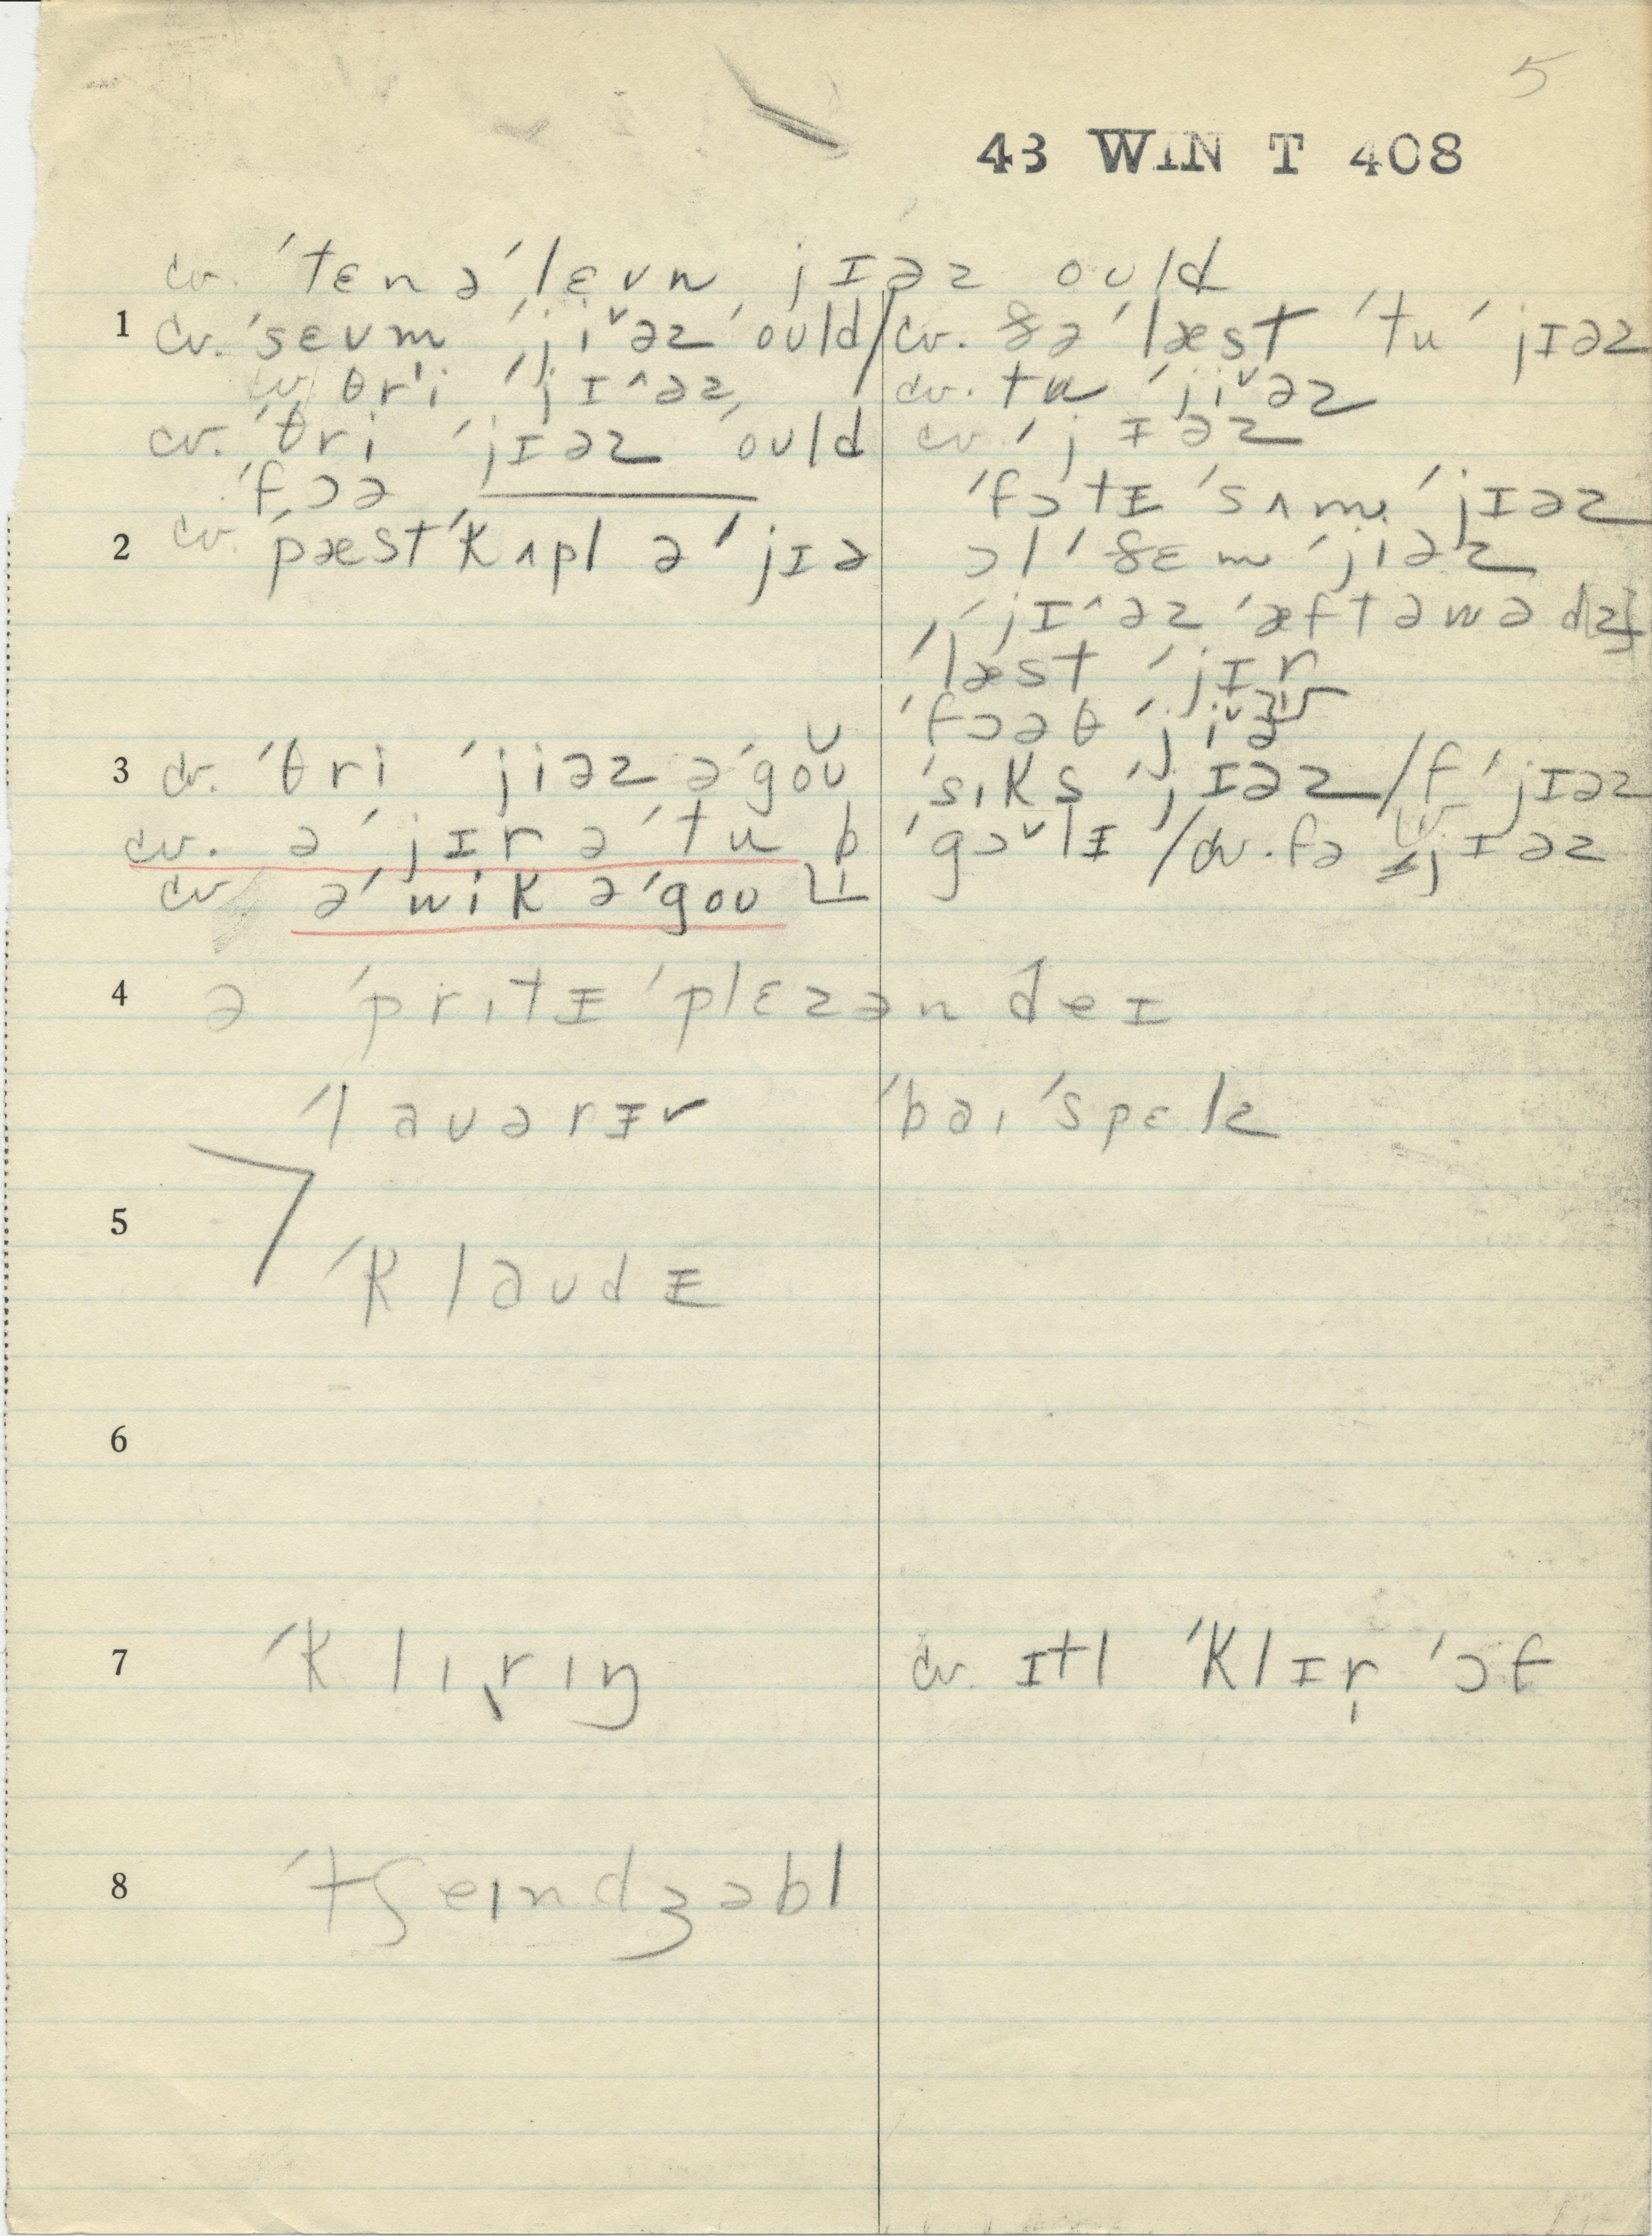 5
43 WIN T 408
cv. ˈtɛn əˈlɛvn̩ jɪəz ould
1 cv. ˈsɛvm ˈji˅əz ˈould / cv. ðə ˈlæst ˈtu ˈjɪəz
cv. θri ˈjɪ^əz cv. tu ˈji˅əz
cv. ˈθri ˈjɪəz ˈould cv. ˈjɪəz
ˈfɔə ˈfɔtɪ ˈsʌm ˈjɪəz
2 cv. ˈpæst ˈkʌpl ə ˈjɪə ɔl ˈðɛm ˈjiəz
ˈjɪ^əz ˈæftəwəd[z]
ˈlæst ˈjɪr
ˈfɔəθ ˈji˅ə
3 cv. ˈθri ˈjiəz əˈgou ˈsɪks ˈjɪəz / f ˈjɪəz
cv. ə ˈjɪr ə ˈtu b ˈgɔ˅lɪ / cv. fə ˈjɪəz
cv. ə ˈwik əˈgou
4 ə ˈprɪtɪ ˈplɛzən deɪ
ˈlauərɪr ˈbaɪ ˈspɛlz
5
ˈklaudɪ
6
7 ˈklɪrɪŋ cv. ɪtl ˈklɪr ˈɔf
8 ˈtʃeɪndʒəbl